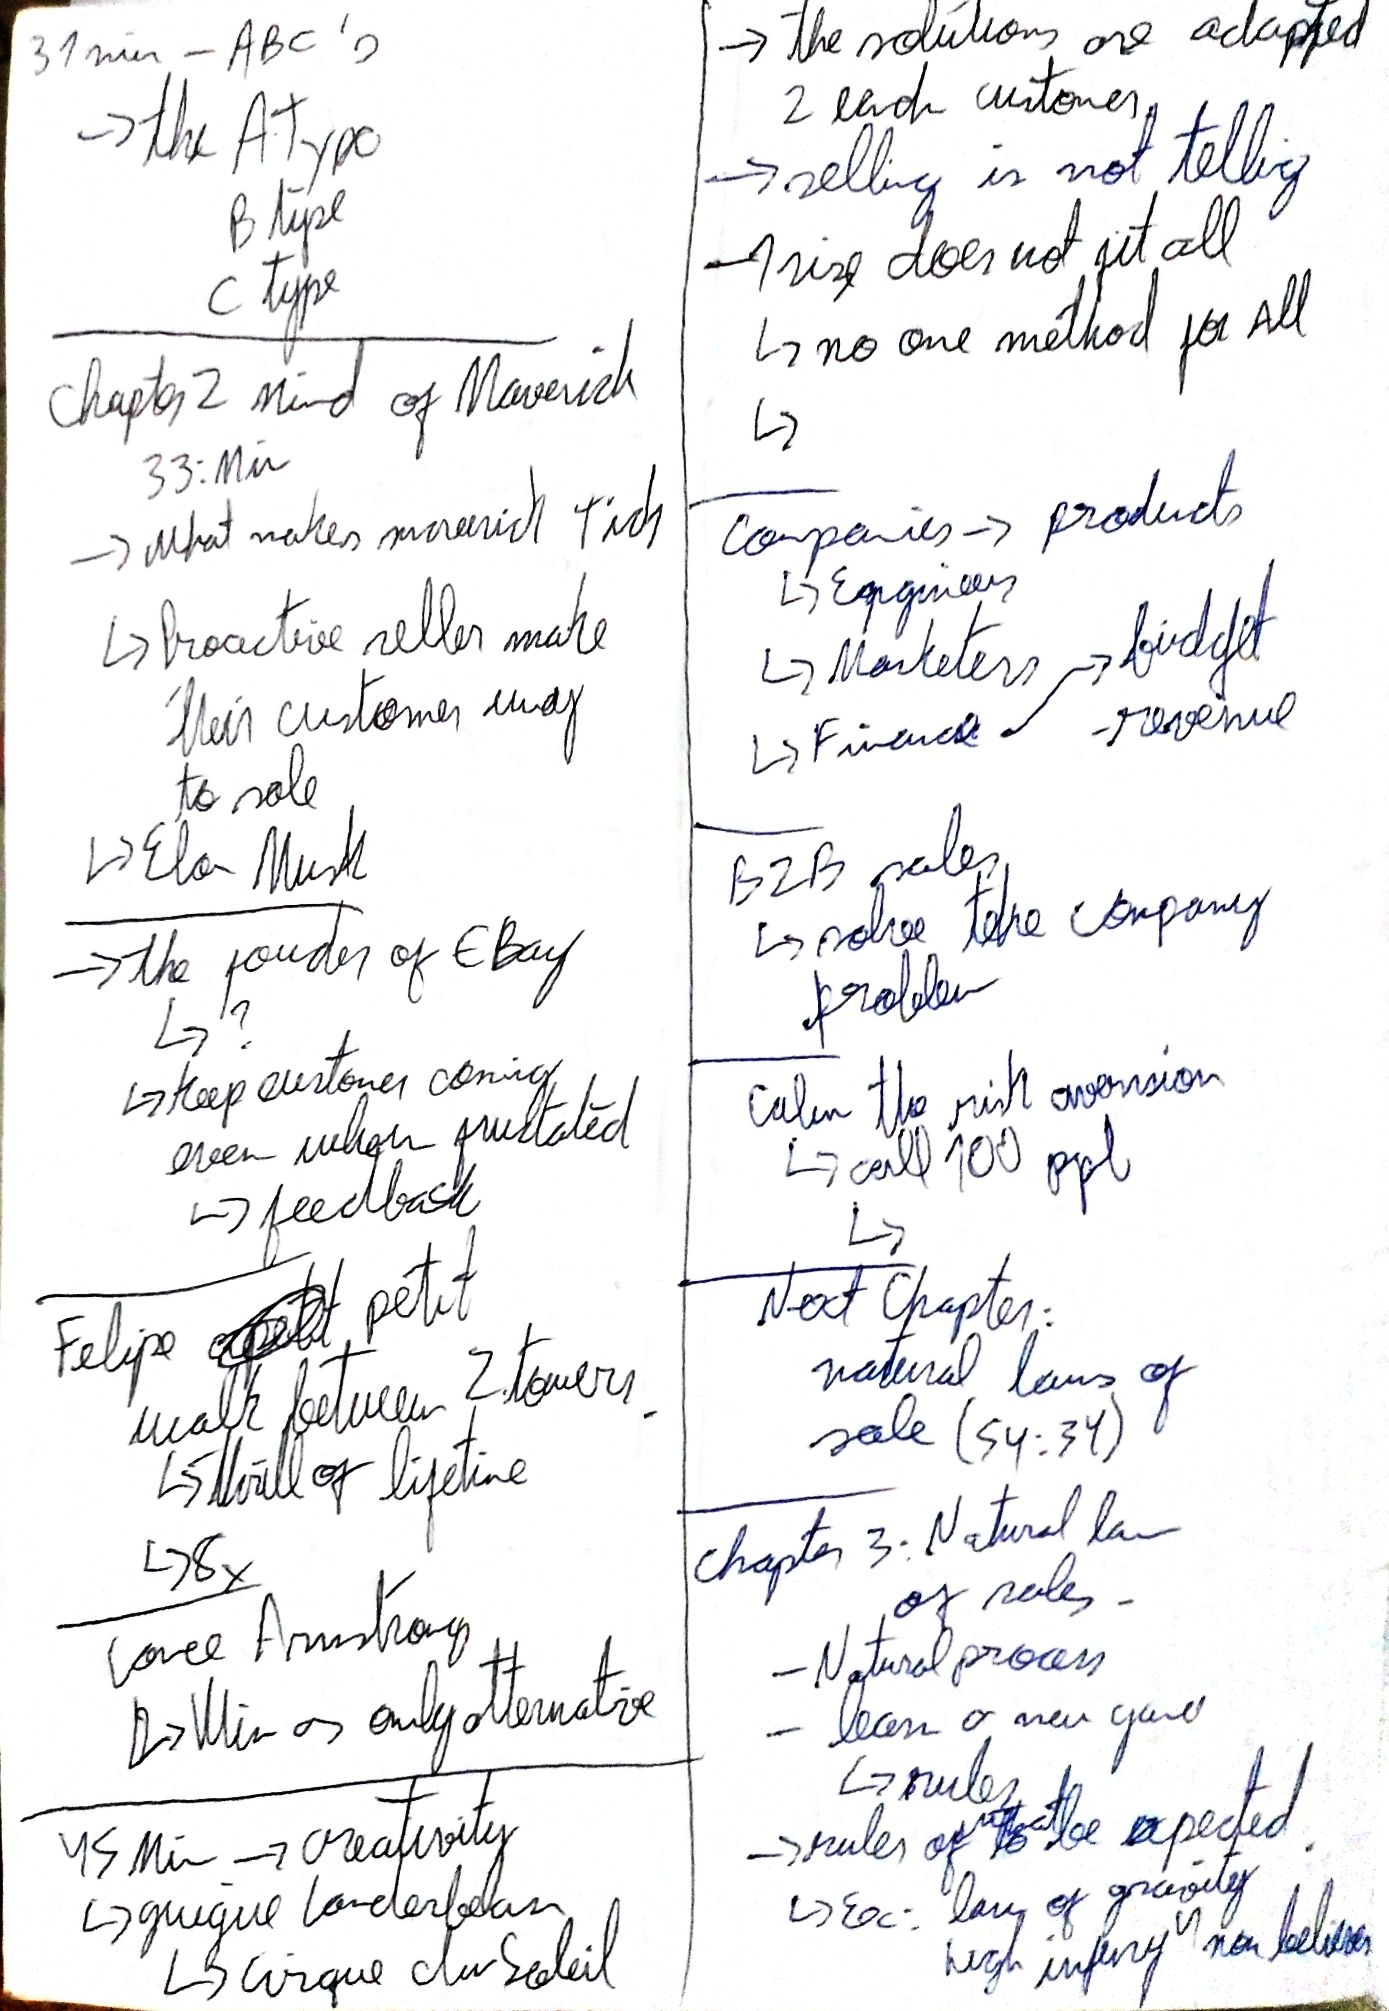 31 min - ABC's
→ the A Type
B type
C type
Chapter 2 Mind of Maverick
33: Min
→ What makes maverick Tick
↳ Proactive seller make
their customer way
to sale
↳ Elon Musk
→ the fouder of EBay
↳ ?
↳ keep customer coming
even when frustated
↳ feedback
Felipe petit
walk between 2 towers.
↳ thrill of lifetine
↳ 8x
Lance Armstrong
↳ Win as only alternative
45 Min → creativity
↳ guigue Landerbean
↳ Cirque du Soleil
→ the solutions are adapted
2 each customer
→ selling is not telling
→ 1 size does not fit all
↳ no one method for All
↳
Companies → products
↳ Engineers
↳ Marketers → budget
↳ Finance - revenue
B2B sales
↳ solve the company
problem
Calm the risk aversion
↳ call 100 ppl
↳
Next Chapter:
natural laws of
sale (54:34)
Chapter 3: Natural law
of sales -
- Natural process
- learn a new game
↳ rules
→ rules of what to be expected.
↳ Ex: law of gravity
high injury non believers